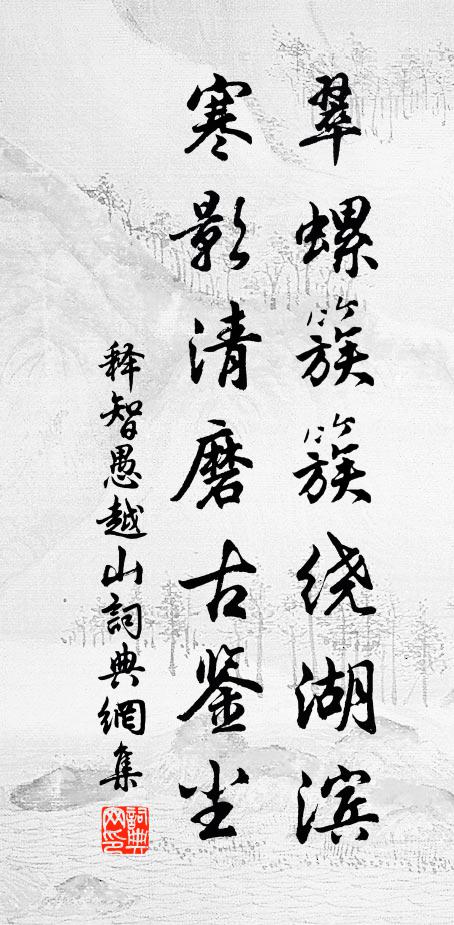 翠螺簇簇绕湖滨
寒影清磨古鉴尘
释智愚越山詞典網集
詞典網印